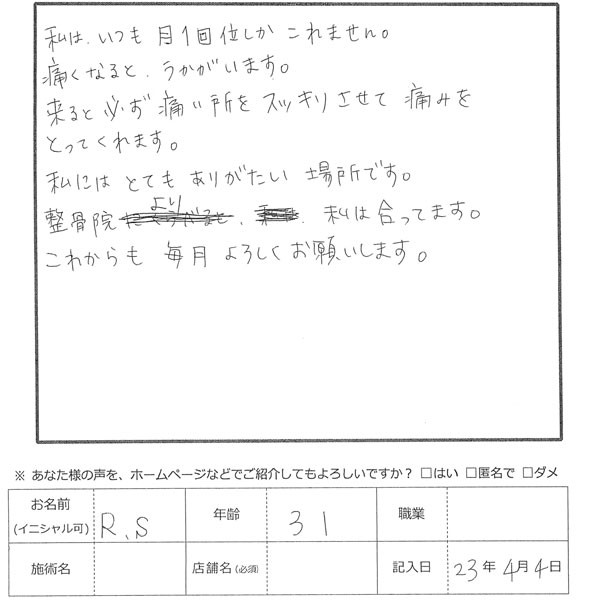 私は、いつも月1回位しかこれません。
痛くなると、うかがいます。
来ると必ず痛い所をスッキリさせて痛みを
とってくれます。
私にはとてもありがたい場所です。
整骨院より、私は合ってます。
これからも毎月よろしくお願いします。
※ あなた様の声を、ホームページなどでご紹介してもよろしいですか？ □はい □匿名で □ダメ
お名前 (イニシャル可) R.S 年齢 31 職業
施術名 店舗名(必須) 記入日 23年4月4日